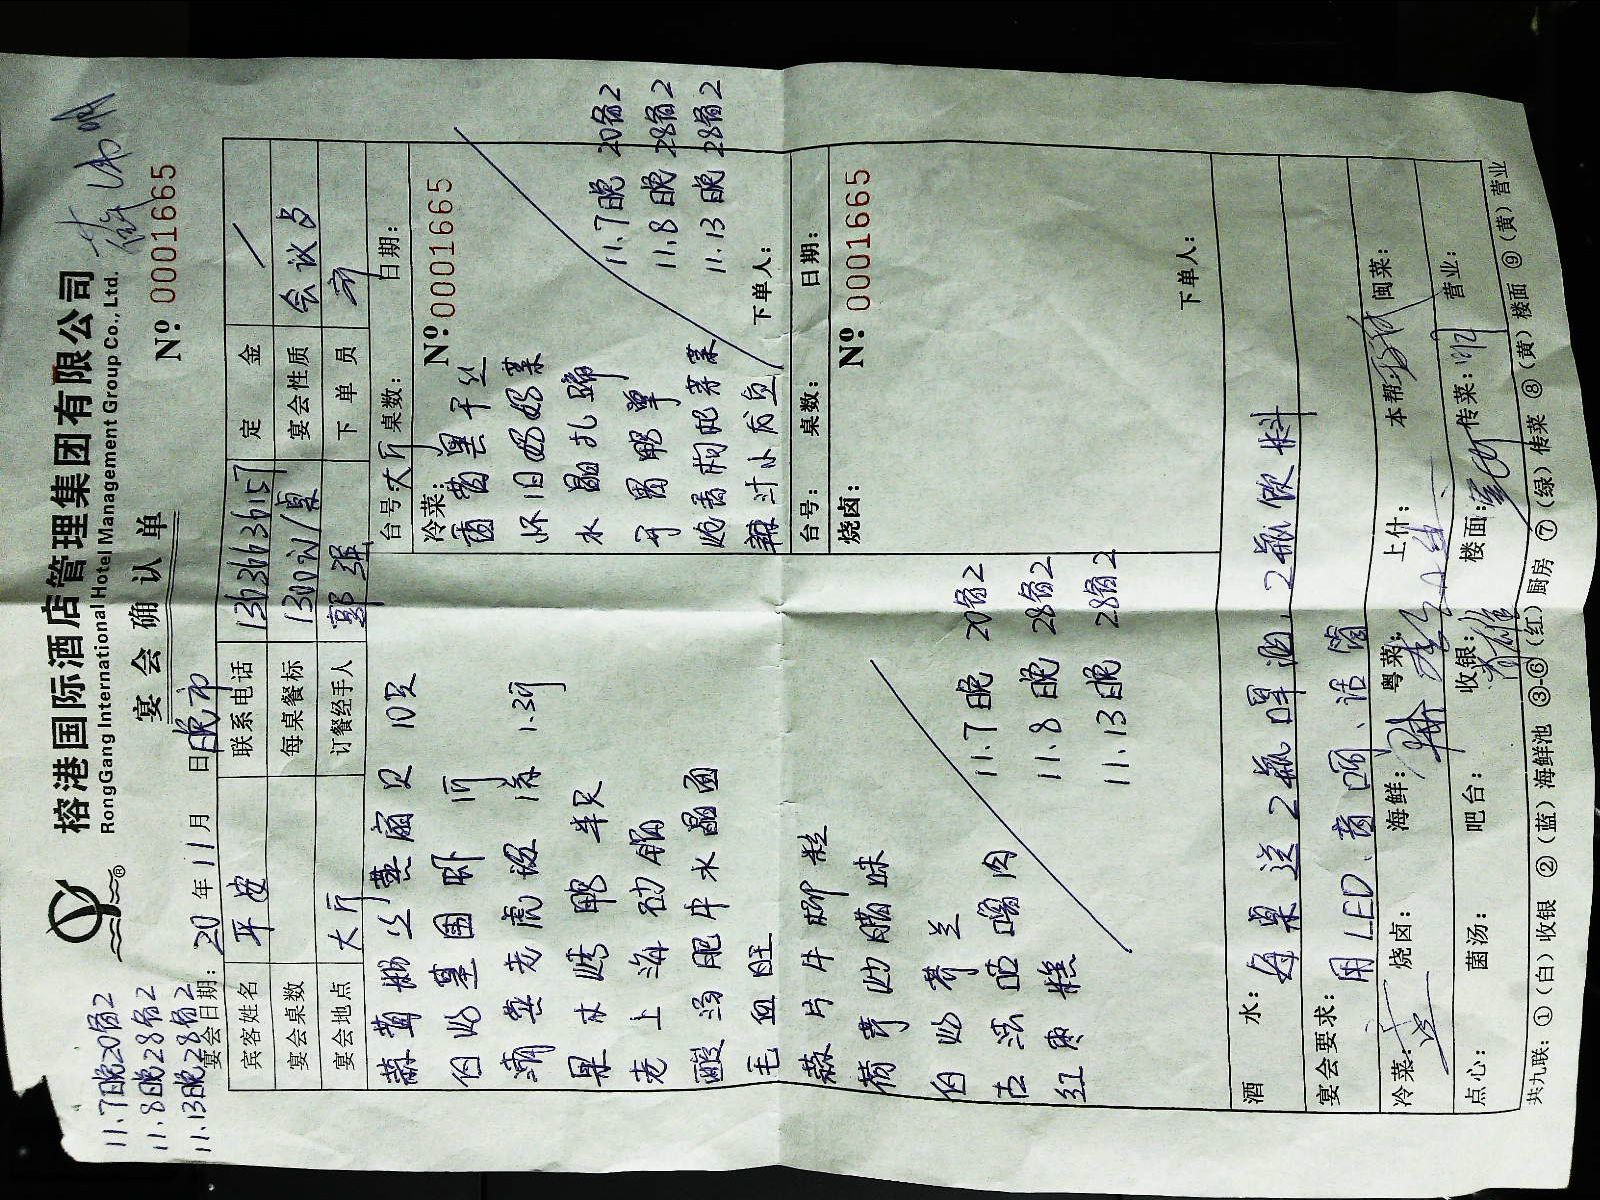 榕港国际酒店管理集团有限公司
RongGang International Hotel Management Group Co., Ltd.
宴会确认单
№ 0001665
11.7晚20备2
11.8晚28备2
11.13晚28备2
宴会日期: 20 年 11 月 日 晚市
宾客姓名 平安 联系电话 13636363657 定金 /
宴会桌数 每桌餐标 1300元/桌 宴会性质 会议占
宴会地点 大厅 订餐经手人 郭强 下单员
蒜茸粉丝蒸扇贝 10只
白灼基围虾 1斤
清蒸老虎斑 1条 1.3斤
果木烤鸭 半只
老上海砂锅
酸汤肥牛水晶面
毛血旺
蒜片牛柳粒
荷芹炒腊味
白灼芥兰
古法
红枣糕
11.7晚 20备2
11.8晚 28备2
11.13晚 28备2
台号: 大厅 桌数: 日期:
冷菜: № 0001665
茴香黑干丝
怀旧奶奶菜
水晶扎蹄
11.7晚 20备2
11.8晚 28备2
11.13晚 28备2
下单人:
台号: 桌数: 日期:
烧卤: № 0001665
下单人:
酒水: 每桌送2瓶啤酒,2瓶饮料
宴会要求: 用LED、音响、话筒
冷菜: 烧卤: 海鲜: 粤菜: 上什: 本帮: 闽菜:
点心: 菌汤: 吧台: 收银: 楼面: 传菜: 营业:
共九联: ①(白)收银 ②(蓝)海鲜池 ③-⑥(红)厨房 ⑦(绿)传菜 ⑧(黄)楼面 ⑨(黄)营业